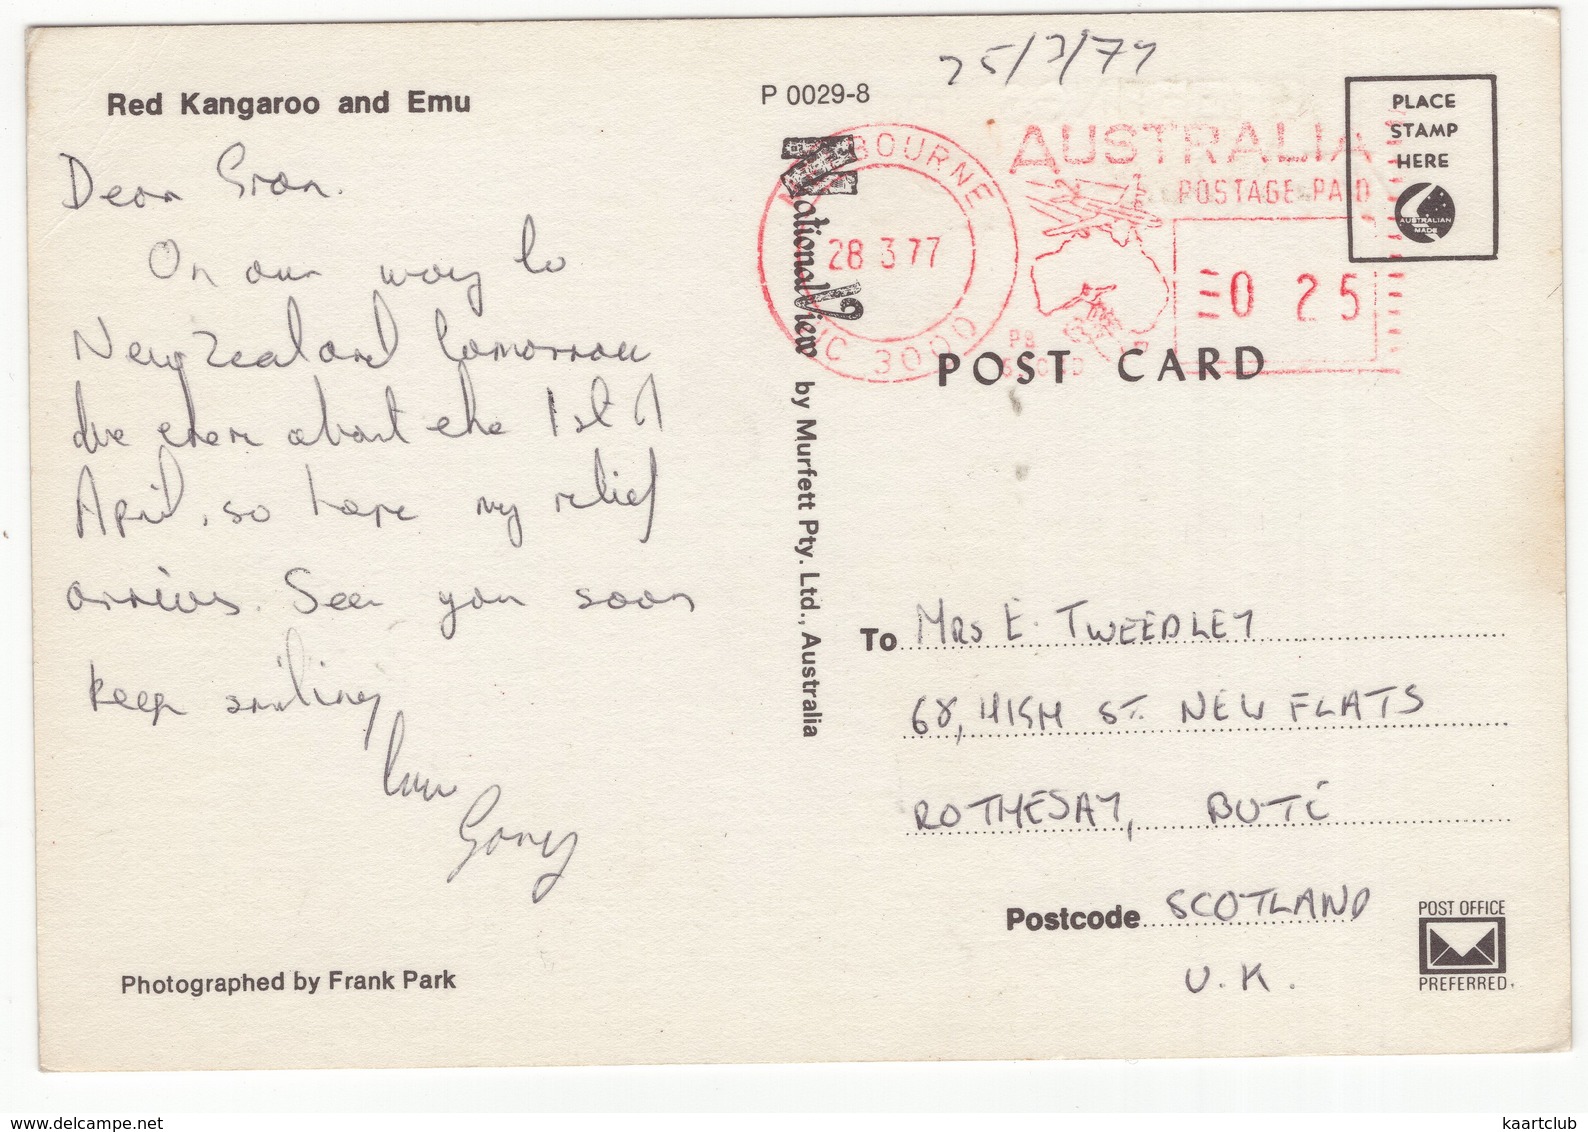 25/3/77
Red Kangaroo and Emu
P 0029-8
Dear Gran.
On our way to
New Zealand tomorrow
due there about the 1st of
April, so hope my relief
arrives. See you soon
keep smiling
love
Gary
Photographed by Frank Park
National View by Murfett Pty. Ltd., Australia
MELBOURNE
28 3 77
VIC 3000
AUSTRALIA
POSTAGE PAID
0 25
PLACE
STAMP
HERE
AUSTRALIAN
MADE
POST CARD
To MRS E. TWEEDLEY
68, HIGH ST. NEW FLATS
ROTHESAY, BUTE
Postcode SCOTLAND
U.K.
POST OFFICE
PREFERRED
www.delcampe.net
kaartclub